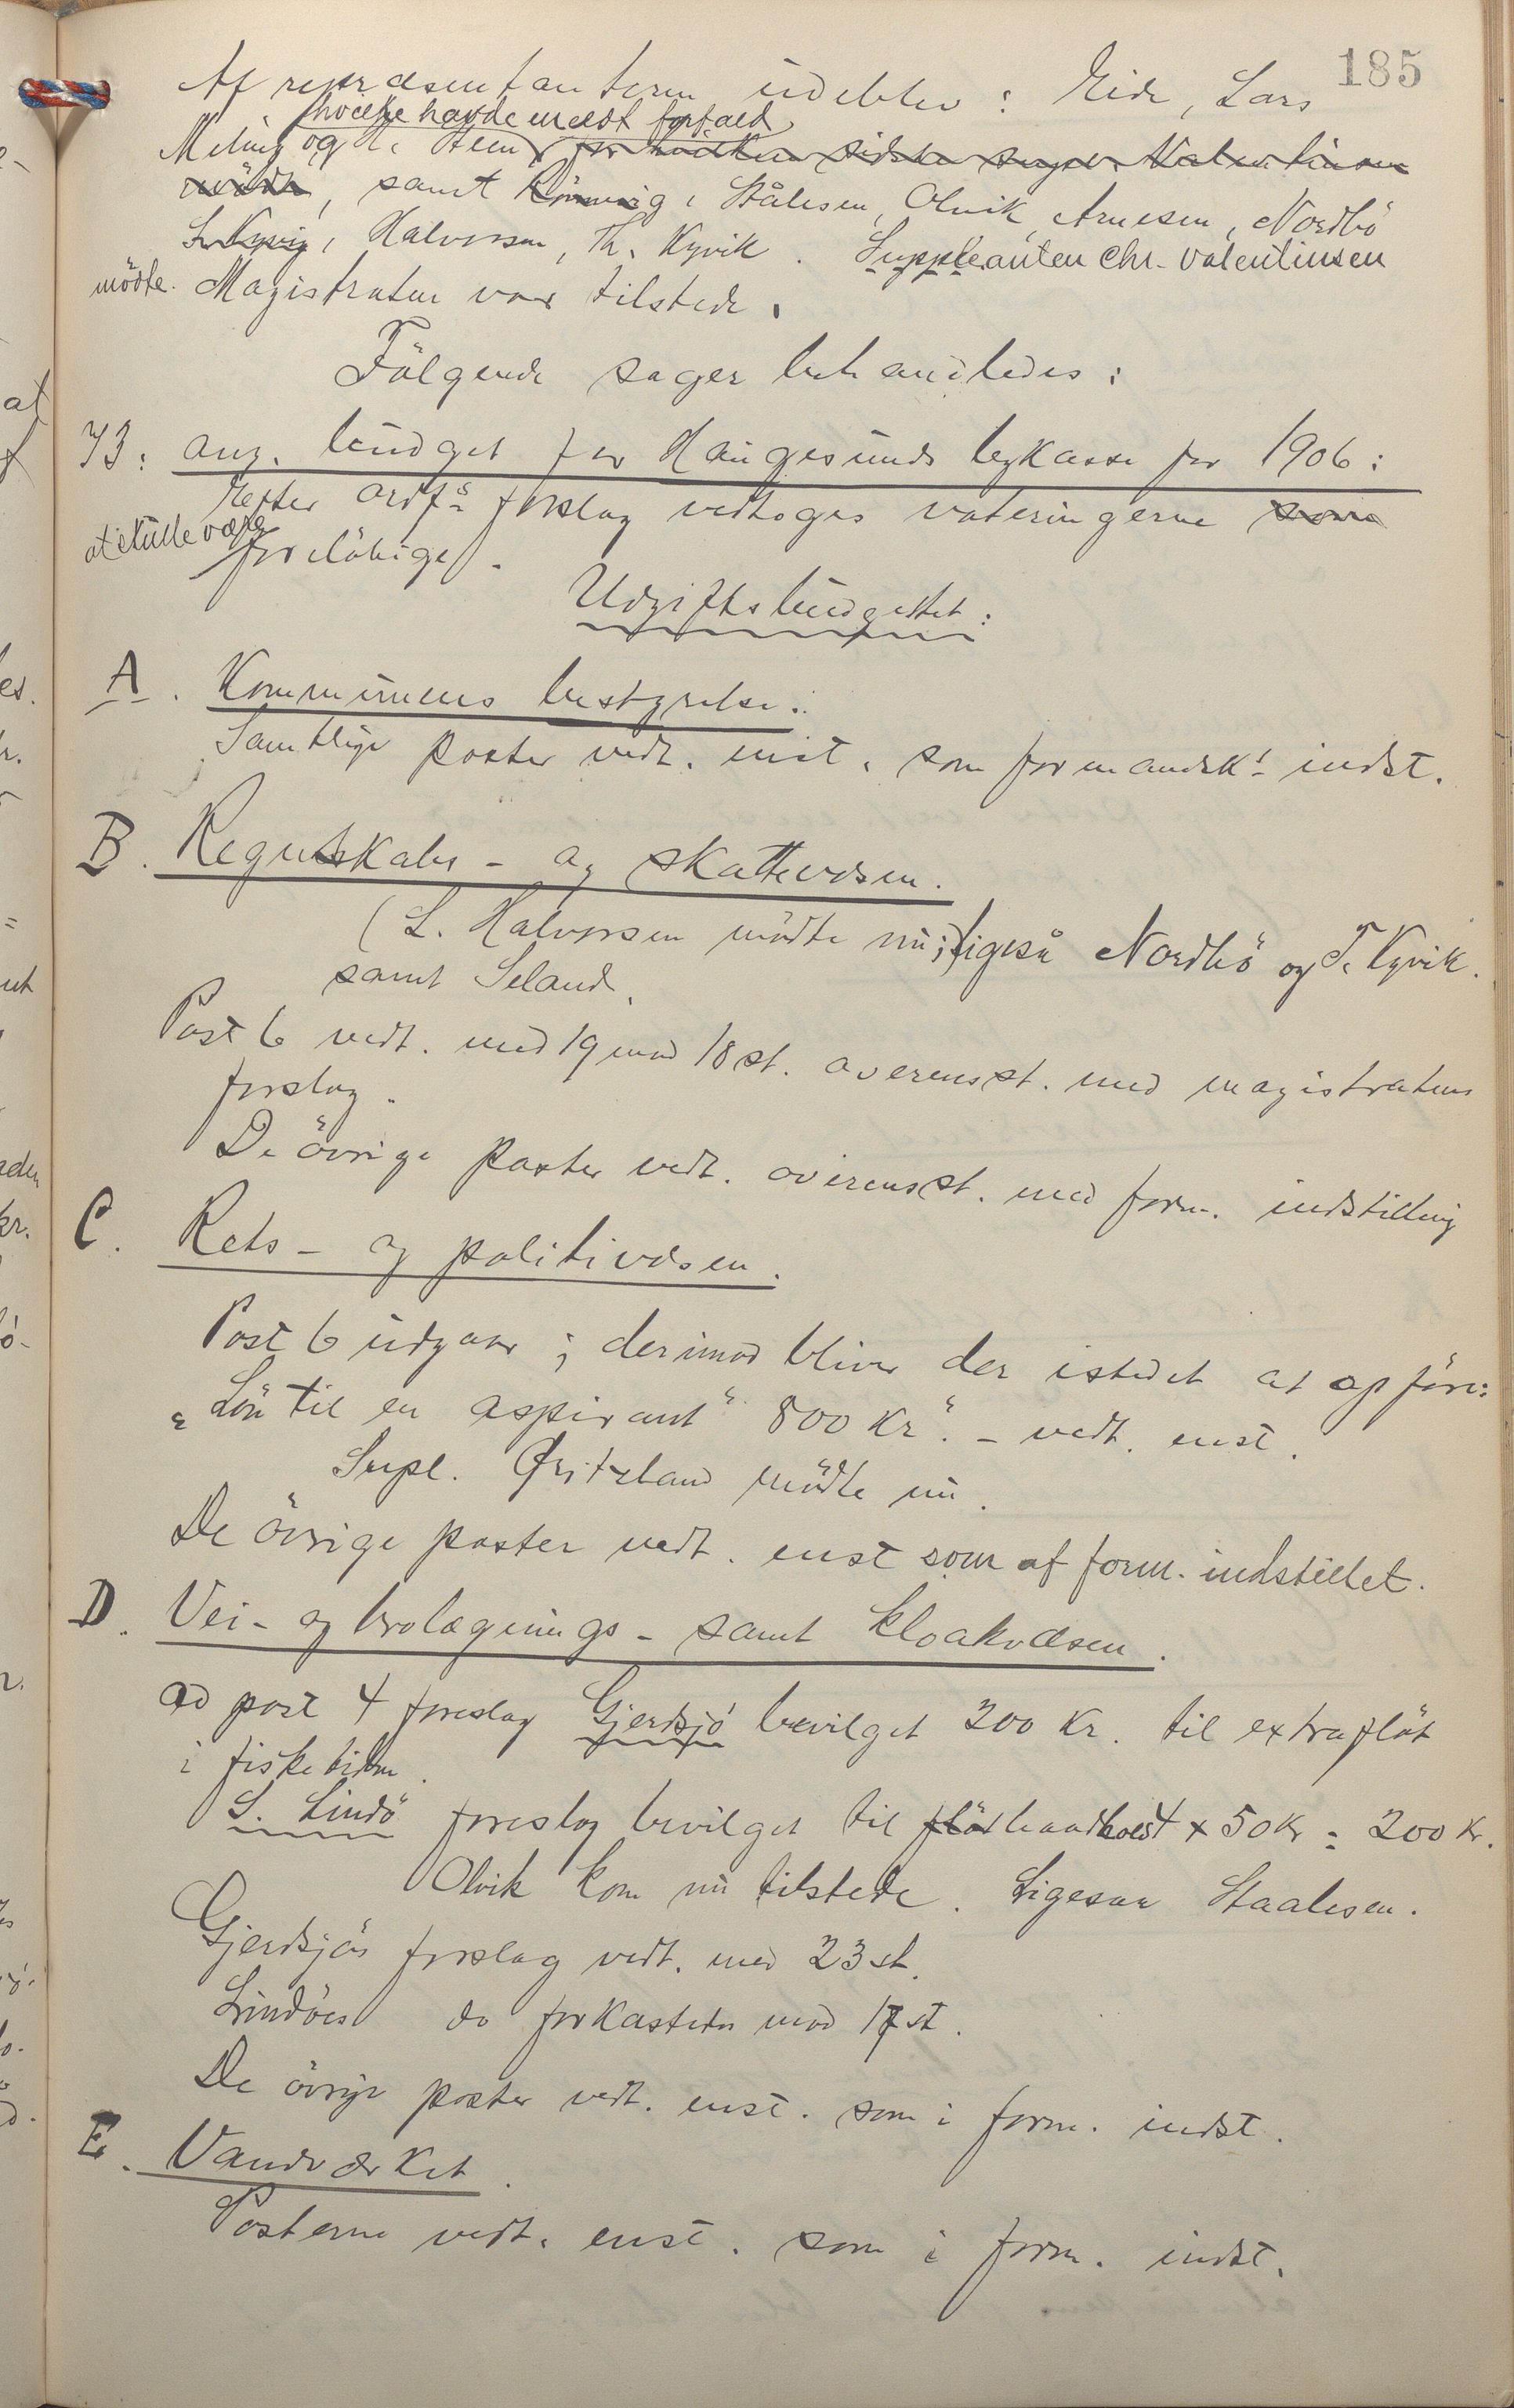 185
Af repræsentanterne udeblev: Eide, Lars
hvilke havde meldt forfald
Meling og H. Steen, for hvilken sidste supl. Valentinsen
mödte, samt Rönnevig, Stålesen, Olvik, Arnesen, Nordbö
L. Kyvig, Halvorsen, Th. Kyvik. Suppleanten Chr. Valentinsen
mödte. Magistraten var tilstede.
Fölgende sager behandledes:
73: ang. budget for Haugesunds bykasse for 1906:
Efter ordf's forslag vedtoges voteringerne som
at skulle være
foreløbige.
Udgiftsbudgettet:
A. Kommunens bestyrelse:
Samtlige poster vedt. enst. som formandsk's indst.
B. Regnskabs- og skattevæsen.
(L. Halvorsen mödte nu; ligeså Nordbö og T. Kyvik.
samt Seland.
Post 6 vedt. med 19 mod 18 st. overensst. med magistratens
forslag.
De övrige poster vedt. overensst. med form. indstilling
C. Rets- og politivæsen.
Post 6 udgaar; derimod bliver der istedet at opföre:
"Lön til en aspirant" 800 kr." - vedt. enst.
Supl. Gritzland mödte nu.
De övrige poster vedt. enst som af form. indstillet.
D. Vei- og brolægnings- samt kloakvæsen.
ad post 4 foreslog Gjerdsjö bevilget 200 kr. til extraflöt
i fisketiden.
S. Lindö foreslog bevilget til flöt baadhold 4 x 50 kr = 200 kr.
Olvik kom nu tilstede. Ligesaa Staalesen.
Gjerdsjös forslag vedt. med 23 st.
Lindöes do forkastedes mod 17 st.
De övrige poster vedt. enst. som i form. indst.
E. Vandværket.
Posterne vedt. enst. som i form. indst.